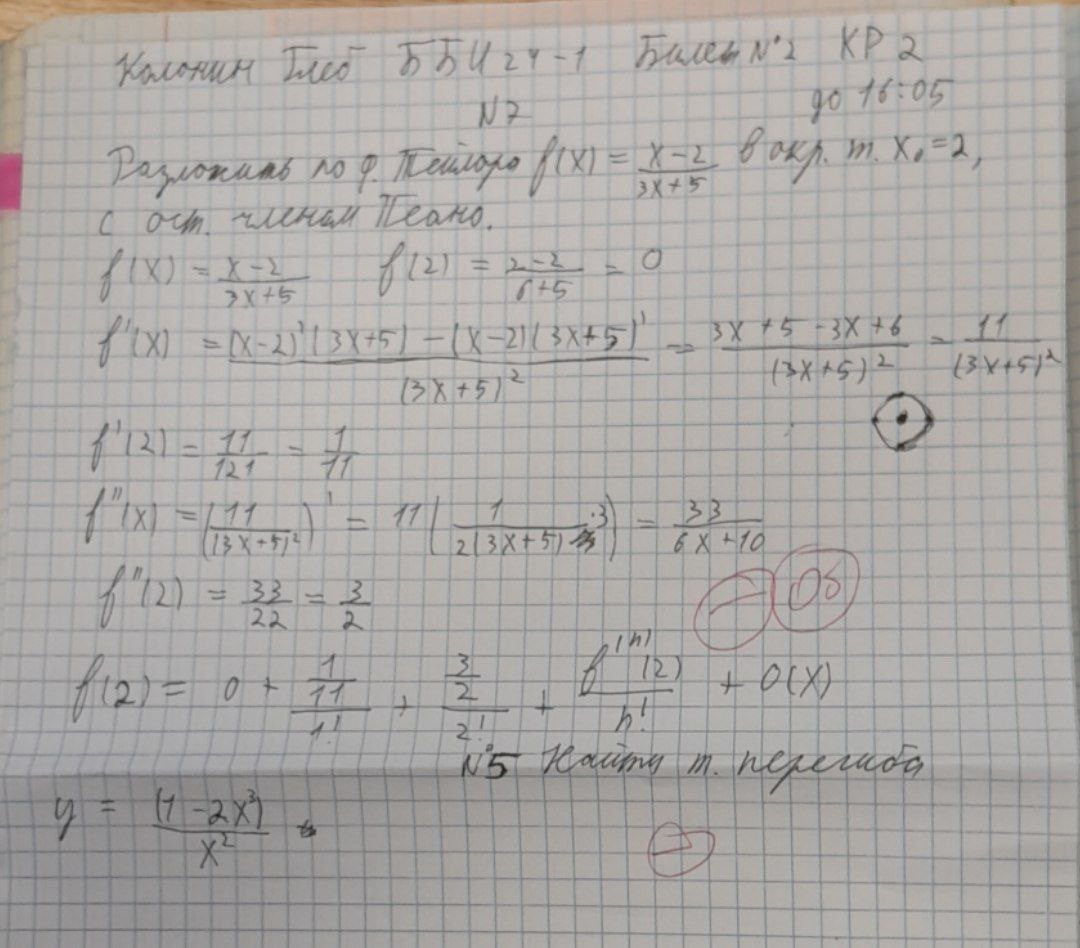 Колонин Глеб ББИ 24-1 Билет №2 КР 2
до 16:05
N7
Разложить по ф. Тейлора f(x) = \frac{x-2}{3x+5} в окр. т. x₀=2,
с ост. членом Пеано.
f(x) = \frac{x-2}{3x+5} f(2) = \frac{2-2}{6+5} = 0
f'(x) = \frac{(x-2)'(3x+5) - (x-2)(3x+5)'}{(3x+5)^2} = \frac{3x+5-3x+6}{(3x+5)^2} = \frac{11}{(3x+5)^2}
f'(2) = \frac{11}{121} = \frac{1}{11}
f''(x) = (\frac{11}{(3x+5)^2})' = 11(\frac{1}{2(3x+5)}·3) = \frac{33}{6x+10}
f''(2) = \frac{33}{22} = \frac{3}{2}
— 0б
f(2) = 0 + \frac{\frac{1}{11}}{1!} + \frac{\frac{3}{2}}{2!} + \frac{f^{(n)}(2)}{n!} + O(x)
№5 Найти т. перегиба
y = \frac{(1-2x^3)}{x^2}
—